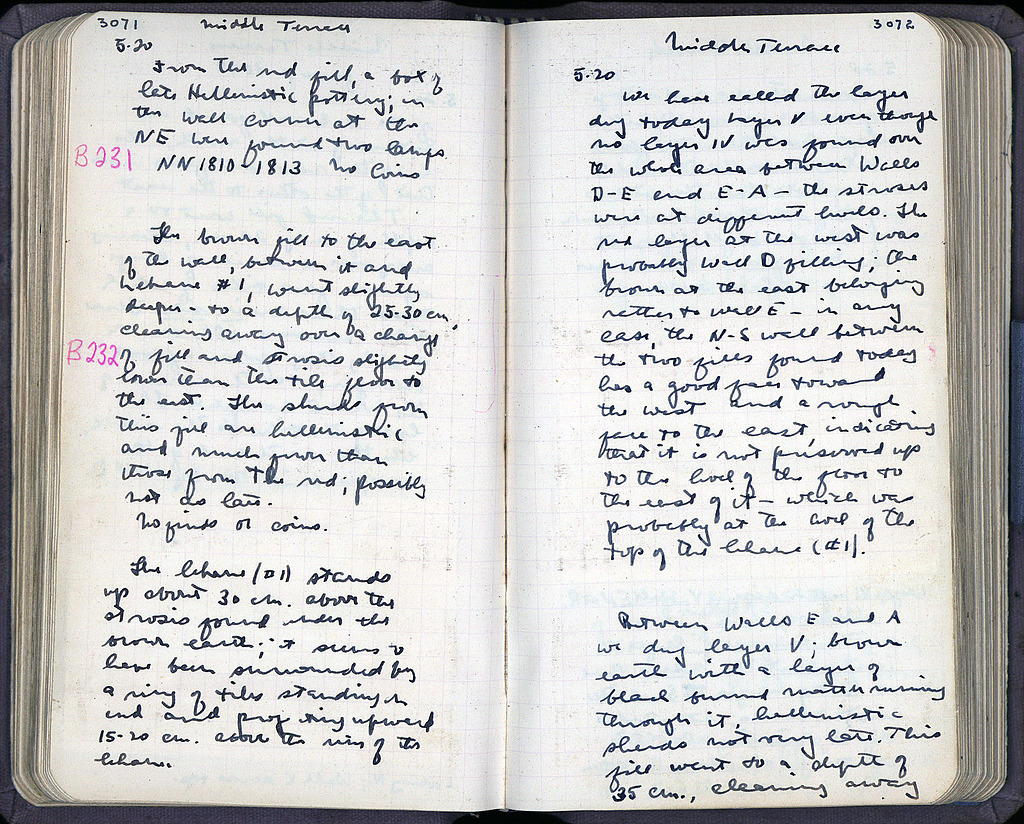 3071 Middle Terrace
5.20
From the red fill, a box of
late Hellenistic pottery; in
the wall corner at the
NE were found two lamps
B231 NN 1810, 1813 No Coins
The brown fill to the east
of the wall, between it and
lekane #1, went slightly
deeper - to a depth of 25-30 cm,
clearing away over a change
B232 of fill and strosis slightly
lower than the tile floor to
the east. The sherds from
this fill are hellenistic
and much fewer than
those from the red; possibly
not as late.
No finds or coins.
The lekane (#1) stands
up about 30 cm. above the
strosis found under the
brown earth; it seems to
have been surrounded by
a ring of tiles standing on
end and projecting upward
15-20 cm. above the rim of the
lekane.
3072
Middle Terrace
5.20
We have called the layer
dug today layer V even though
no layer IV was found over
the whole area between Walls
D-E and E-A - the stroses
were at different levels. The
red layer at the west was
probably Wall D filling; the
brown at the east belonging
rather to Wall E - in any
case, the N-S wall between
the two fills found today
has a good face toward
the west and a rough
face to the east, indicating
that it is not preserved up
to the level of the floor to
the east of it - which was
probably at the level of the
top of the lekane (#1).
Between Walls E and A
we dug layer V; brown
earth with a layer of
black burned matter running
through it, hellenistic
sherds not very late. This
fill went to a depth of
35 cm., clearing away